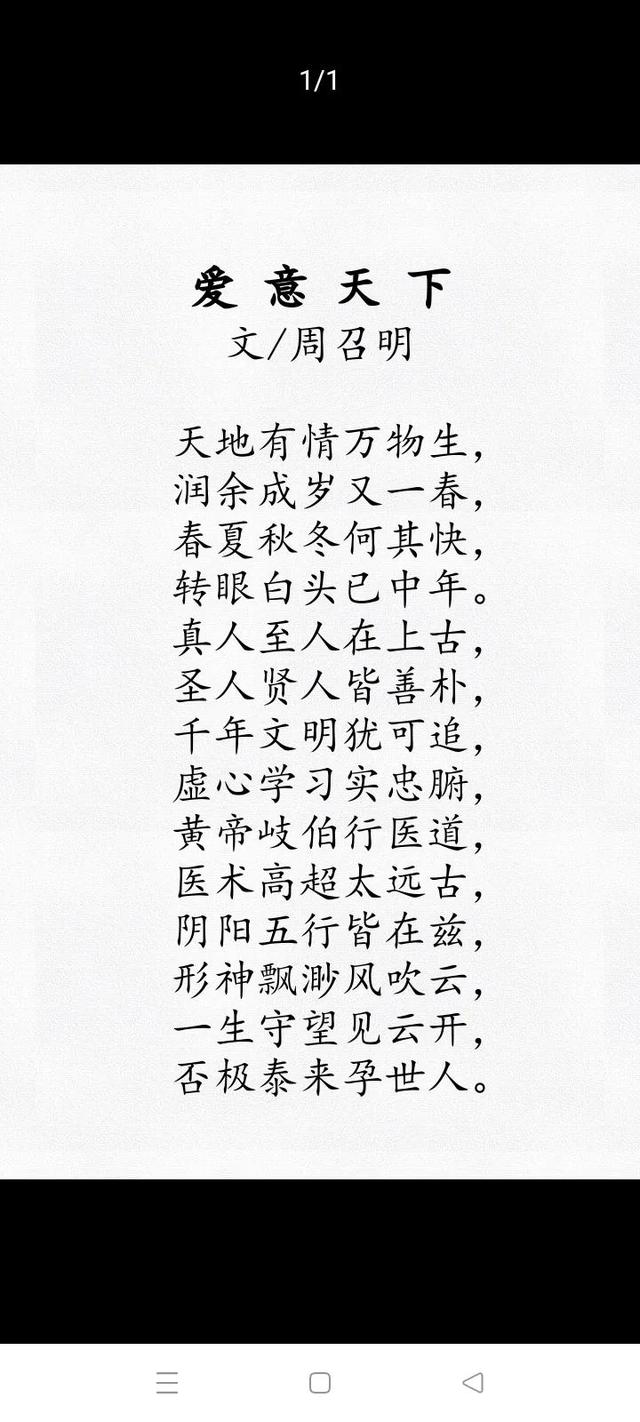 1/1
爱意天下
文/周召明
天地有情万物生，
润余成岁又一春，
春夏秋冬何其快，
转眼白头已中年。
真人至人在上古，
圣人贤人皆善朴，
千年文明犹可追，
虚心学习实忠腑，
黄帝岐伯行医道，
医术高超太远古，
阴阳五行皆在兹，
形神飘渺风吹云，
一生守望见云开，
否极泰来孕世人。